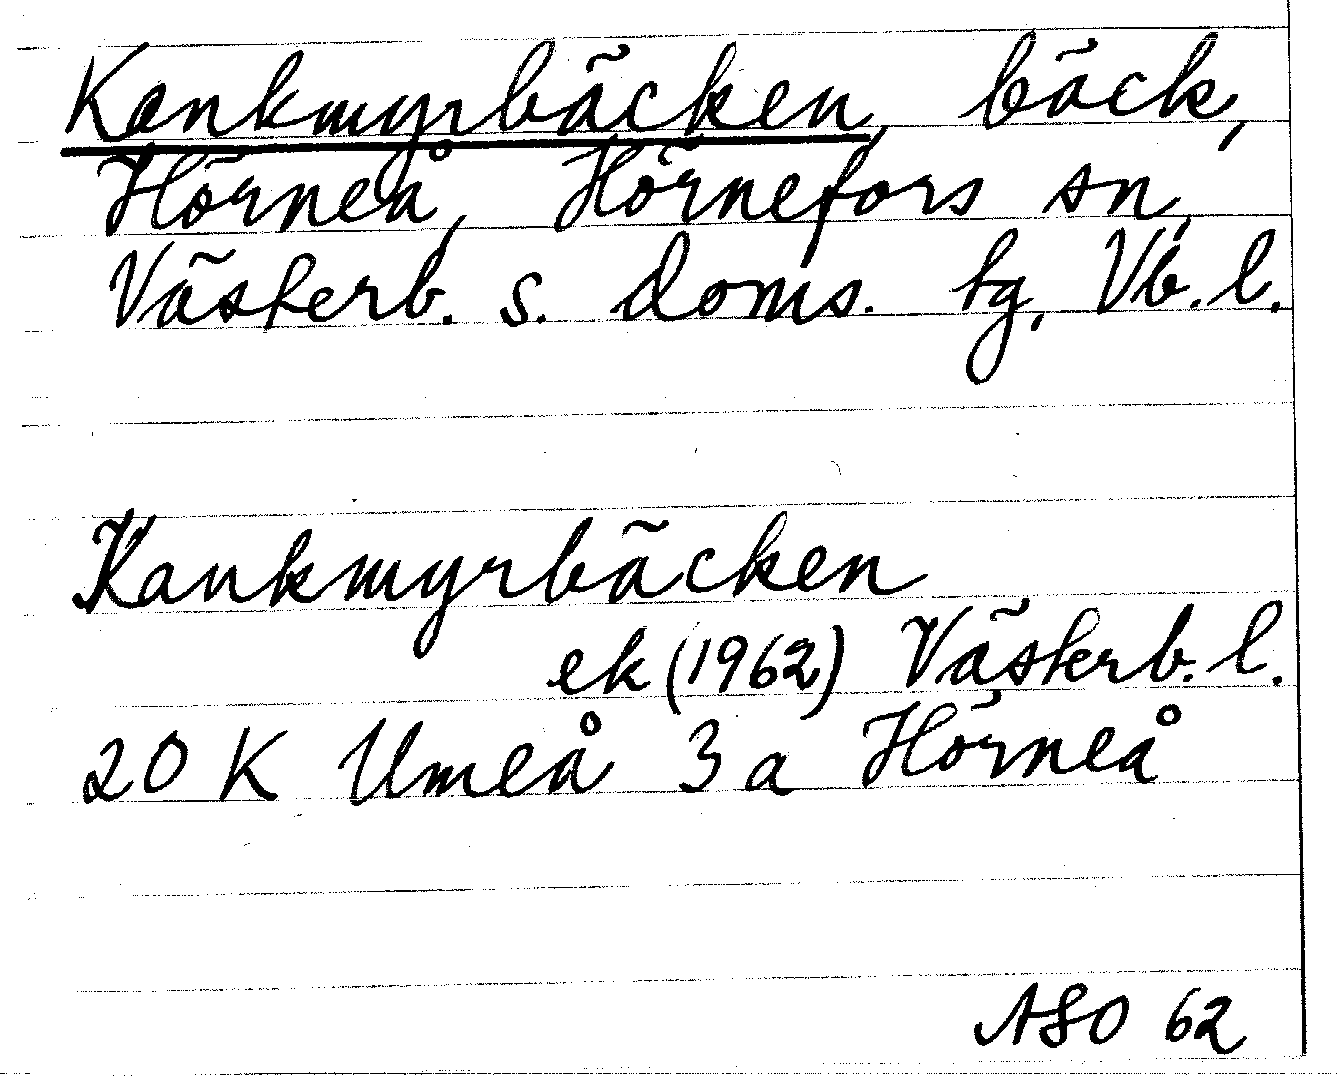 Kankmyrbäcken, bäck,
Hörneå, Hörnefors sn,
Västerb. s. doms. tg, Vb. l.
Kankmyrbäcken
ek (1962) Västerb. l.
20 K Umeå 3 a Hörneå
ASO 62